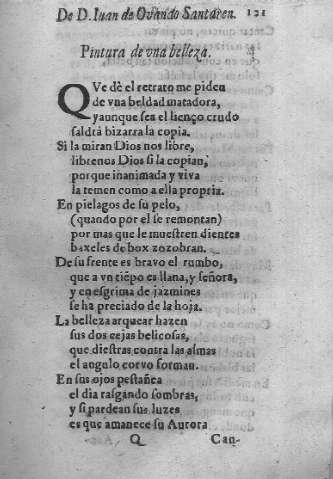 De D. Iuan de Ovando Santaren. 121
Pintura de vna belleza.
QVe dè el retrato me piden
de vna beldad matadora,
y aunque sea el lienço crudo
saldrà bizarra la copia.
Si la miran Dios nos libre,
librenos Dios si la copian,
porque inanimada y viva
la temen como a ella propria.
En pielagos de su pelo,
(quando por el se remontan)
por mas que le muestren dientes
baxeles de box zozobran.
De su frente es bravo el rumbo,
que a vn tiẽpo es llana, y señora,
y en esgrima de jazmines
se ha preciado de la hoja.
La belleza arquear hazen
sus dos cejas belicosas,
que diestras contra las almas
el angulo corvo forman.
En sus ojos pestañea
el dia rasgando sombras,
y si pardean sus luzes
es que amanece su Aurora
Q Can-